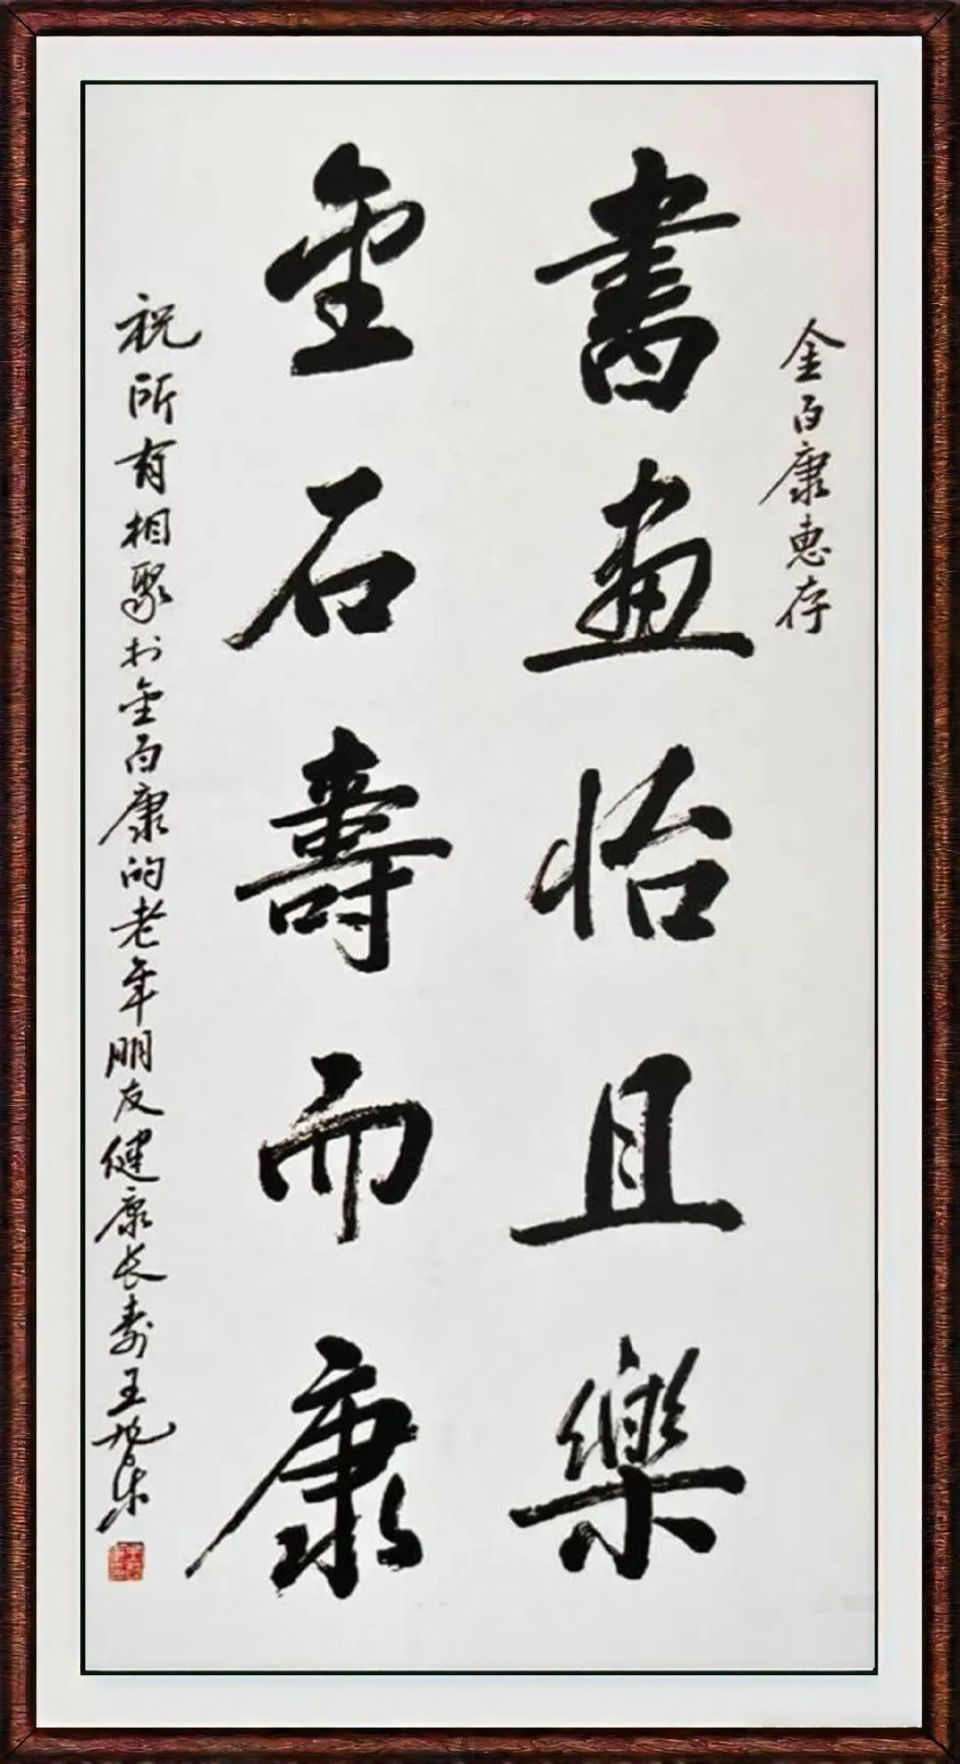 金百康惠存
書畫怡且樂
金石壽而康
祝所有相聚于金百康的老年朋友健康长寿王旭东